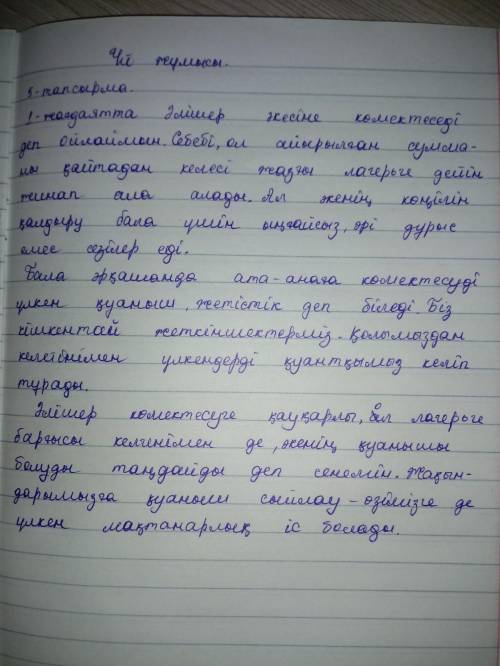 Үй жұмысы.
5-тапсырма.
1-жағдаятта Әлішер әкесіне көмектеседі
деп ойлаймын. Себебі, ол айырылған сумма-
ны қайтадан келесі жазғы лагерьге дейін
жинап ала алады. Ал әкенің көңілін
қалдыру бала үшін ыңғайсыз, әрі дұрыс
емес сезілер еді.
Бала әрқашанда ата-анаға көмектесуді
үлкен қуаныш, жетістік деп біледі. Біз
кішкентай жеткіншектерміз. Қолымыздан
келгенімен үлкендерді қуантқымыз келіп
тұрады.
Әлішер көмектесуге қауқарлы, ол лагерьге
барғысы келгенімен де, әкенің қуанышы
болуды таңдайды деп сенемін. Жақын-
дарымызға қуаныш сыйлау - өзімізге де
үлкен мақтанарлық іс болады.